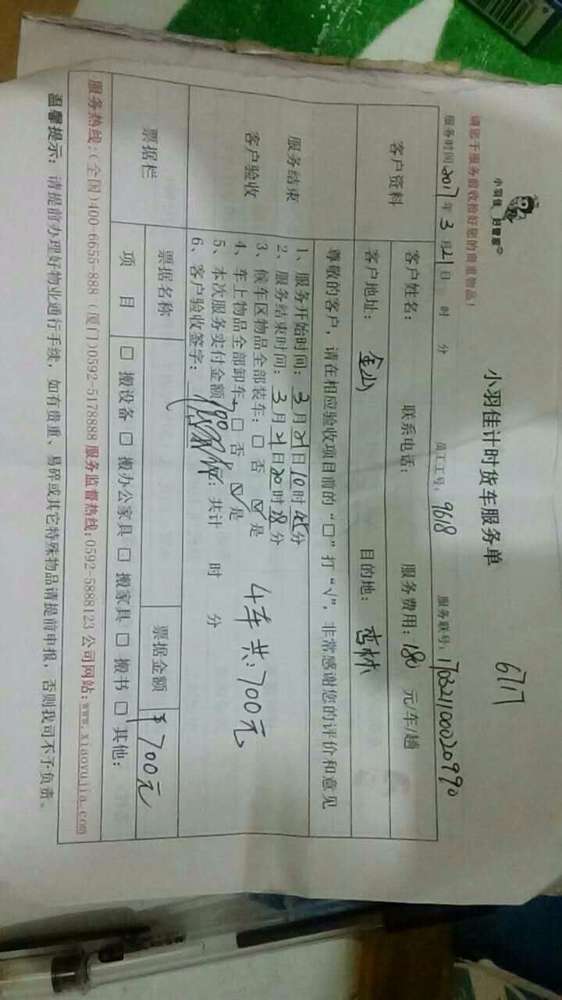 小羽佳 舒管家
小羽佳计时货车服务单
6717
请您于服务前收检好您的贵重物品!
服务时间:2017年 3月 21日 时 分
员工工号: 9618
服务联号: 170321100020990
客户资料
客户姓名: 联系电话: 服务费用: 180 元/车/趟
客户地址: 金山 目的地: 杏林
服务结束
客户验收
尊敬的客户,请在相应验收项目前的“□”打“√”,非常感谢您的评价和意见
1、服务开始时间: 3月21日10时45分
2、服务结束时间: 3月21日20时18分
3、候车区物品全部装车:□ 否 ☑ 是
4、车上物品全部卸车:□ 否 ☑ 是
5、本次服务实付金额 共计 时 分
6、客户验收签字:
4车共:700元
票据栏
票据名称 票据金额 ¥700元
项 目 □ 搬设备 □ 搬办公家具 □ 搬家具 □ 搬书 □ 其他:
服务热线:(全国)400-6655-888 (厦门)0592-5178888 服务监督热线:0592-5888123 公司网站:www.xiaoyujia.com
温馨提示: 请提前办理好物业通行手续,如有贵重、易碎或其它特殊物品请提前申报,否则我司不予负责。